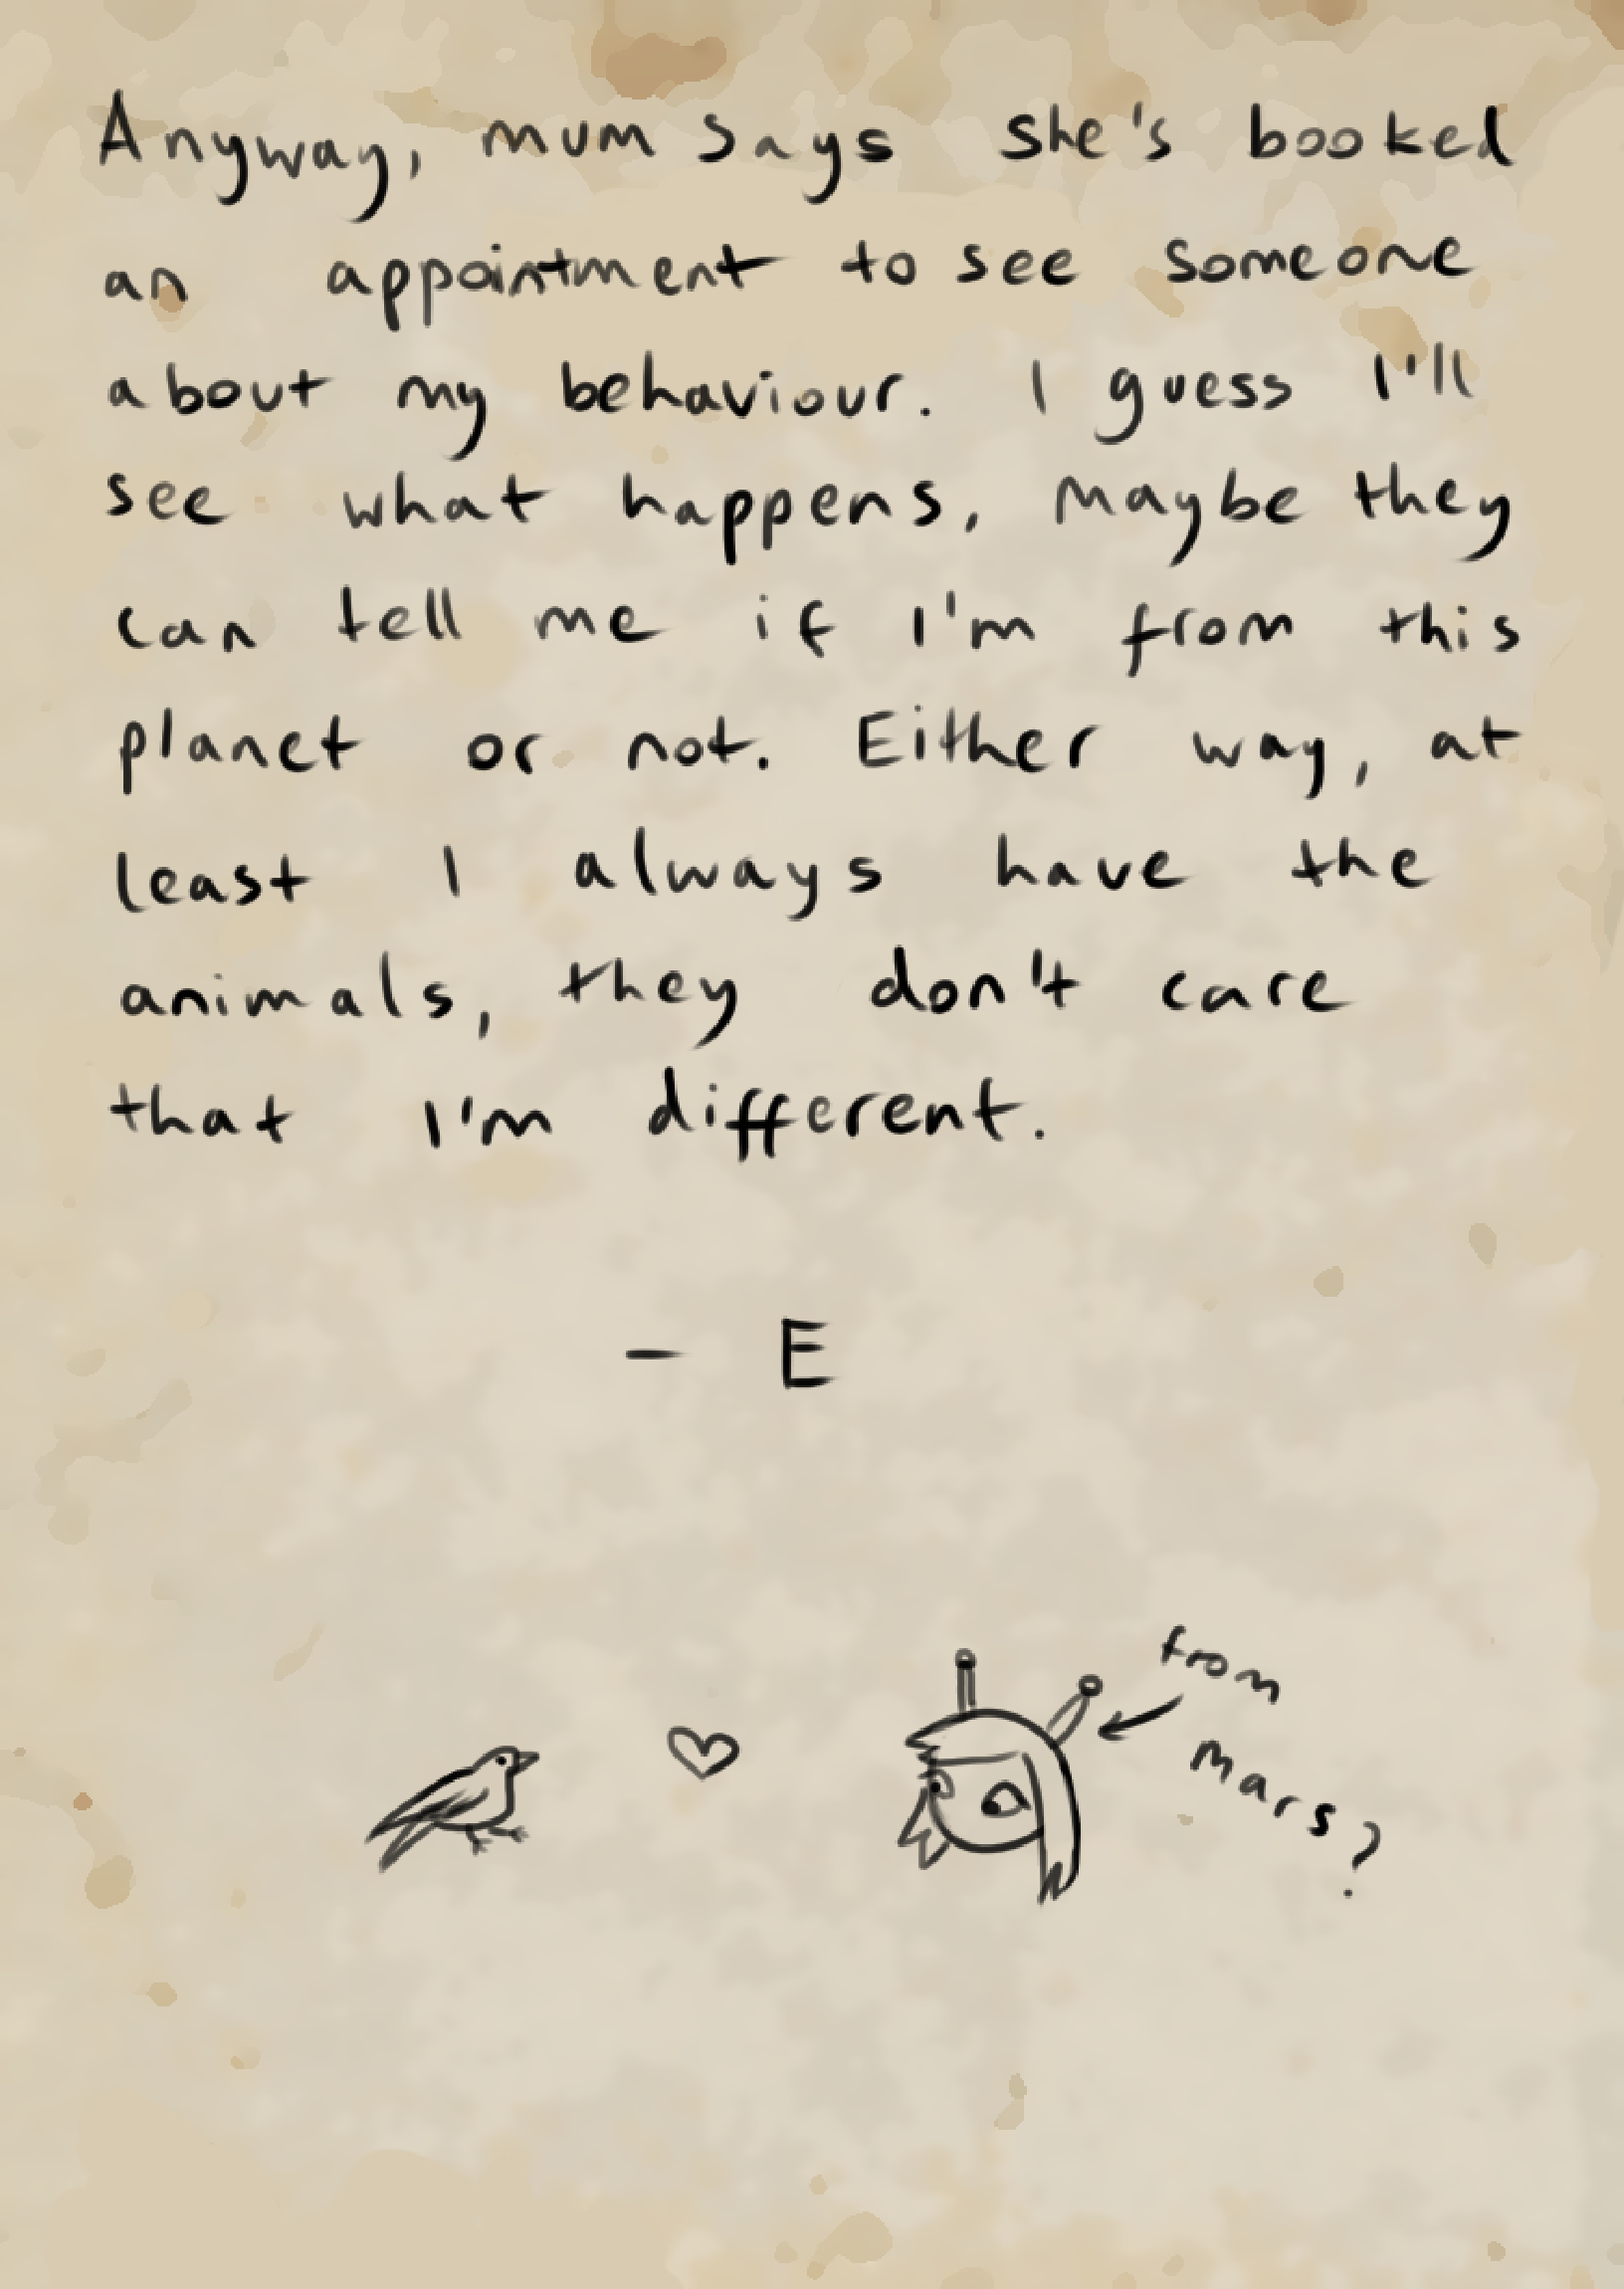 Anyway, mum says she's booked
an appointment to see someone
about my behaviour. I guess I'll
see what happens, maybe they
can tell me if I'm from this
planet or not. Either way, at
least I always have the
animals, they don't care
that I'm different.
- E
from
mars?